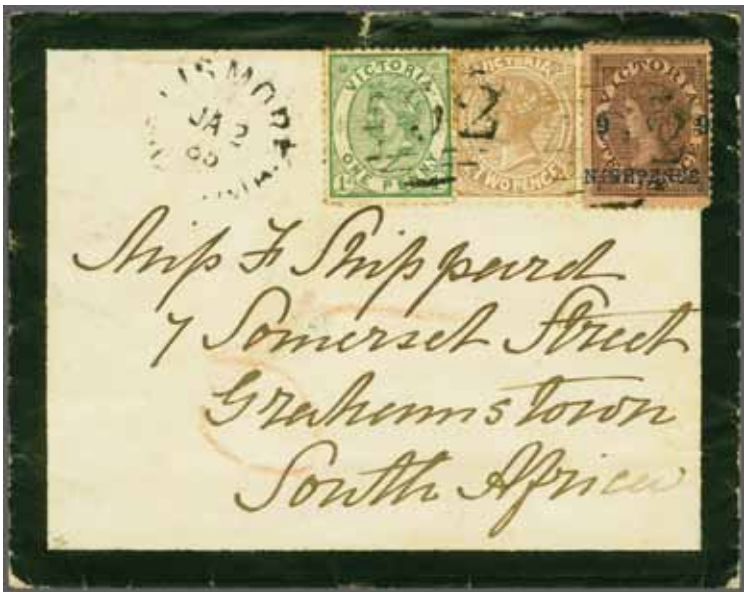 LISMORE
JA 2
VICTORIA
ONE PENNY
VICTORIA
TWO PENCE
VICTORIA
9 9
NINEPENCE
Miss F Shippard
7 Somerset Street
Grahamstown
South Africa